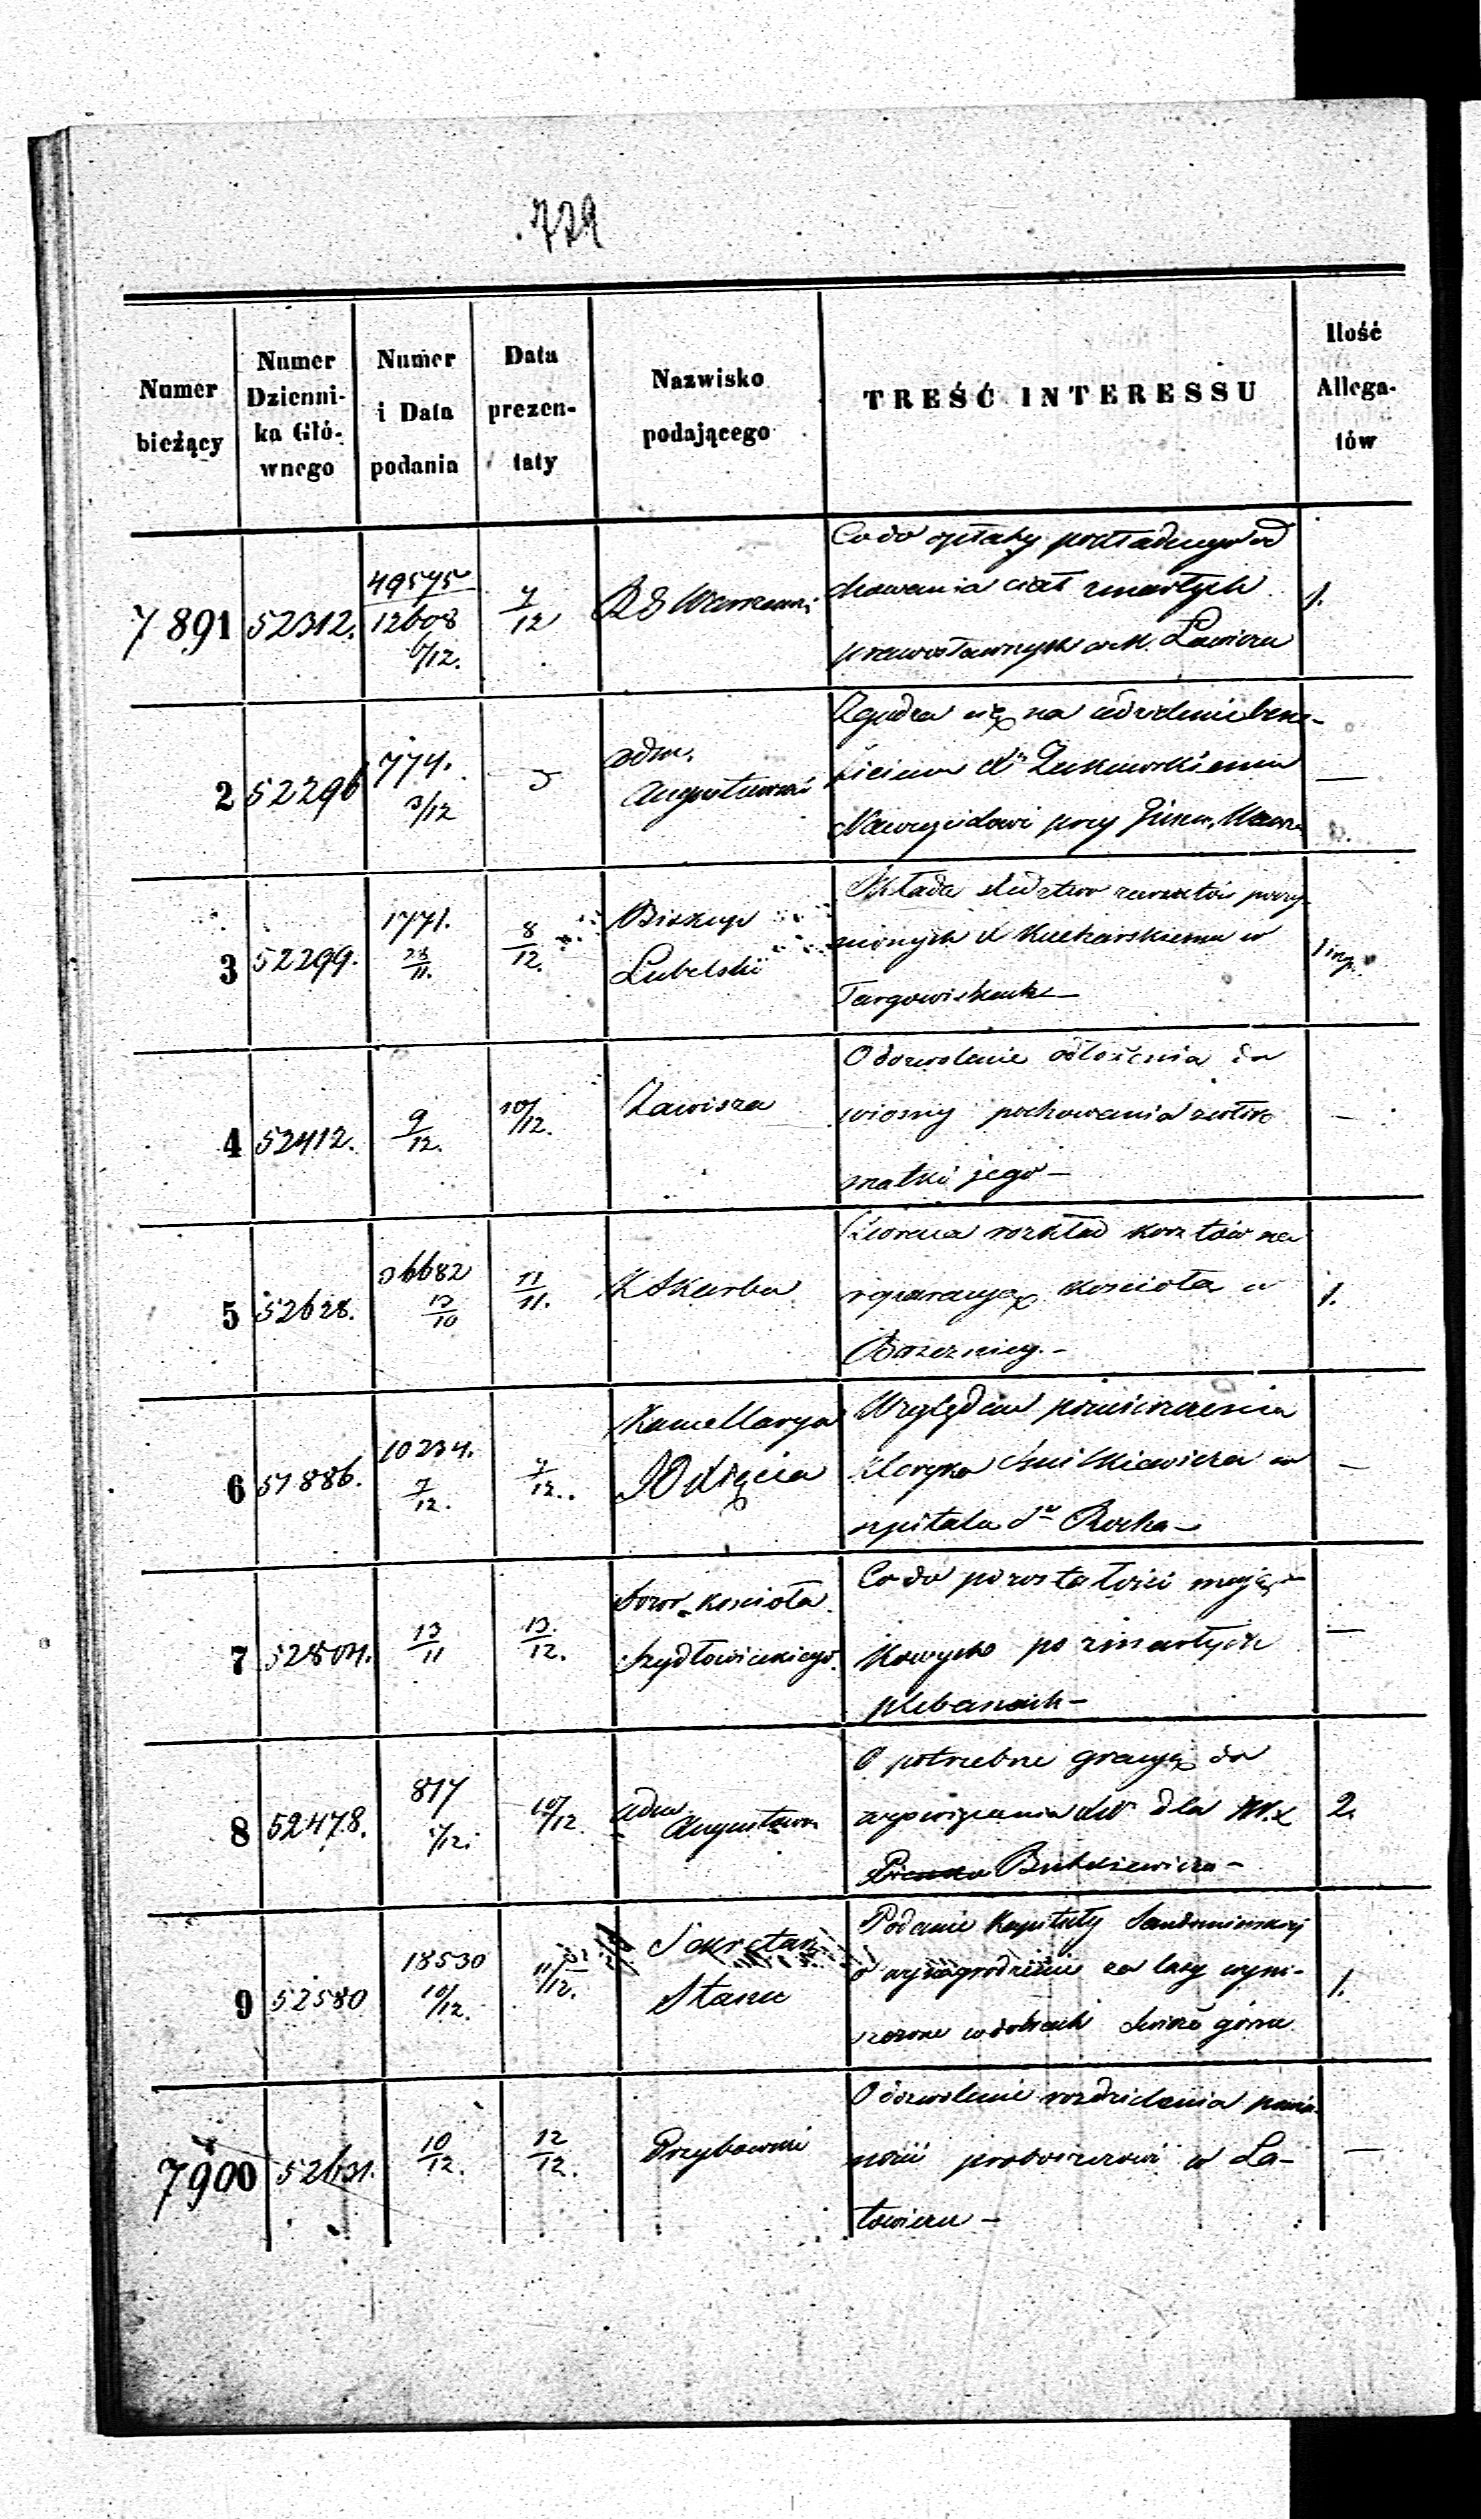 729
Numer bieżący
Numer Dzienni-
ka Głó-
wnego
Numer i Data podania
Data prezen-
taty
Nazwisko podającego
TREŚĆ INTERESSU
Ilość Allega-
tów
7891 52312. 49575 12608 6/12. 7/12 R G Warszawski
Co do opłaty pokładnego od
chowania ciał zmarłych
prawosławnych w m. Łowiczu
1.
2 52296 774. 3/12
adm.
Augustowski
Zgadza się na udzielenie bene-
ficium X Żukowskiemu
Nauczycielowi przy Gimn. Warsz
—
3 52299. 1771. 28/11. 8/12.
Biskup
Lubelski
Składa śledztwo zarzutów poczy-
nionych X Kucharskiemu w
Targowiskach —
4 52412. 9/12. 10/12.
Zawisza
O dozwolenie odłożenia do
wiosny pochowania zwłok
matki jego —
—
5 52628. 36682 13/10 11/11.
K Skarbu
Zwraca rozkład kosztów na
reparacyę kościoła w
1.
6 51886. 10234. 7/12. 7/12.
Kancellarya
JO Xięcia
Względem pomieszczenia
kleryka w
szpitalu Sgo Rocha —
—
7 52804. 13/11 13/12.
Dozór kościoła
Szydłowieckiego.
Co do pozostałości mają-
tkowych po zmarłych
plebanach —
—
8 52478. 817 10/12.
Adm
Augustows
O potrzebne do
dla XX.
2.
9 52580 18530 10/12. 11/12.
Sekretarz
Stanu
Podanie Kapituły Sandomirskiej
o wynagrodzenie za lasy wyni-
szczone w dobrach góra
1.
7900 52631. 10/12. 12/12.
Przybowski
O dozwolenie rozdzielenia powin-
ności proboszczowi w La-
towiczu —
—